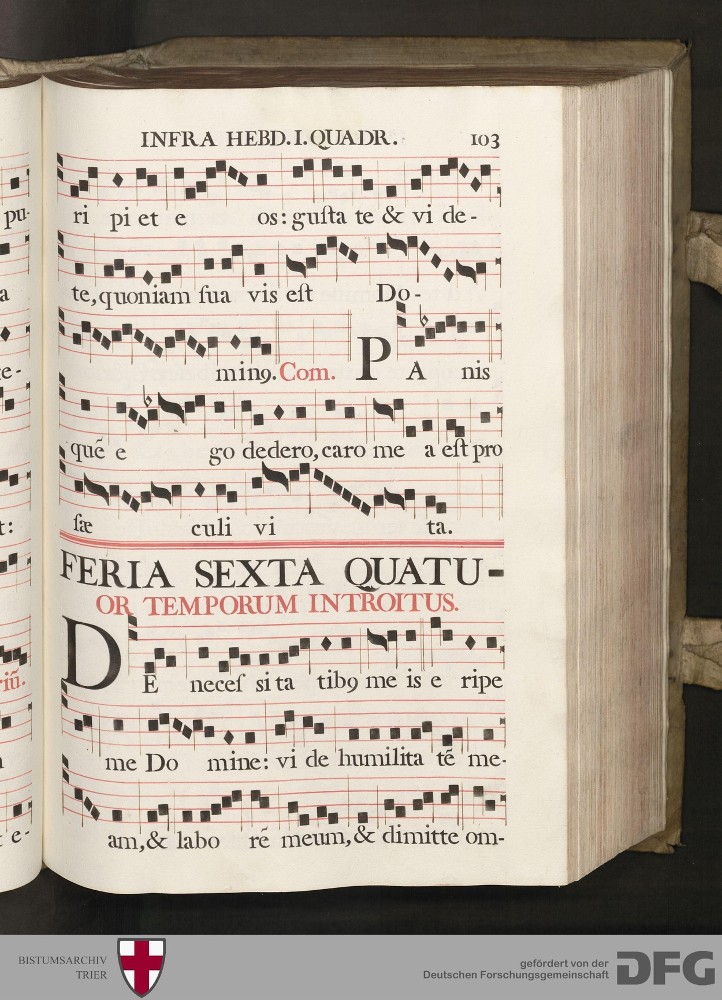 INFRA HEBD. I. QUADR. 103
ri pi et e os: guſta te & vi de-
te, quoniam ſua vis eſt Do-
min9. Com. PA nis
quē e go dedero, caro me a eſt pro
ſæ culi vi ta.
FERIA SEXTA QUATU-
OR TEMPORUM INTROITUS.
DE neceſ si ta tib9 me is e ripe
me Do mine: vi de humilita tē me-
am, & labo rē meum, & dimitte om-
pu-
a
e-
t:
riū.
e-
BISTUMSARCHIV
TRIER
gefördert von der
Deutschen Forschungsgemeinschaft
DFG